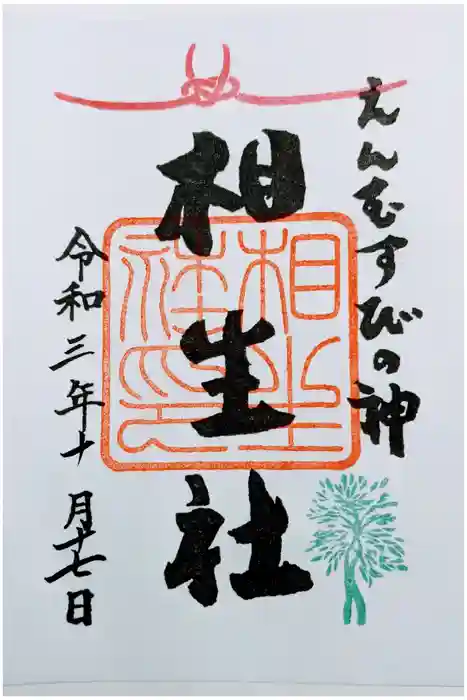 えんむすびの神
相生社
相生社印
令和三年十月十七日